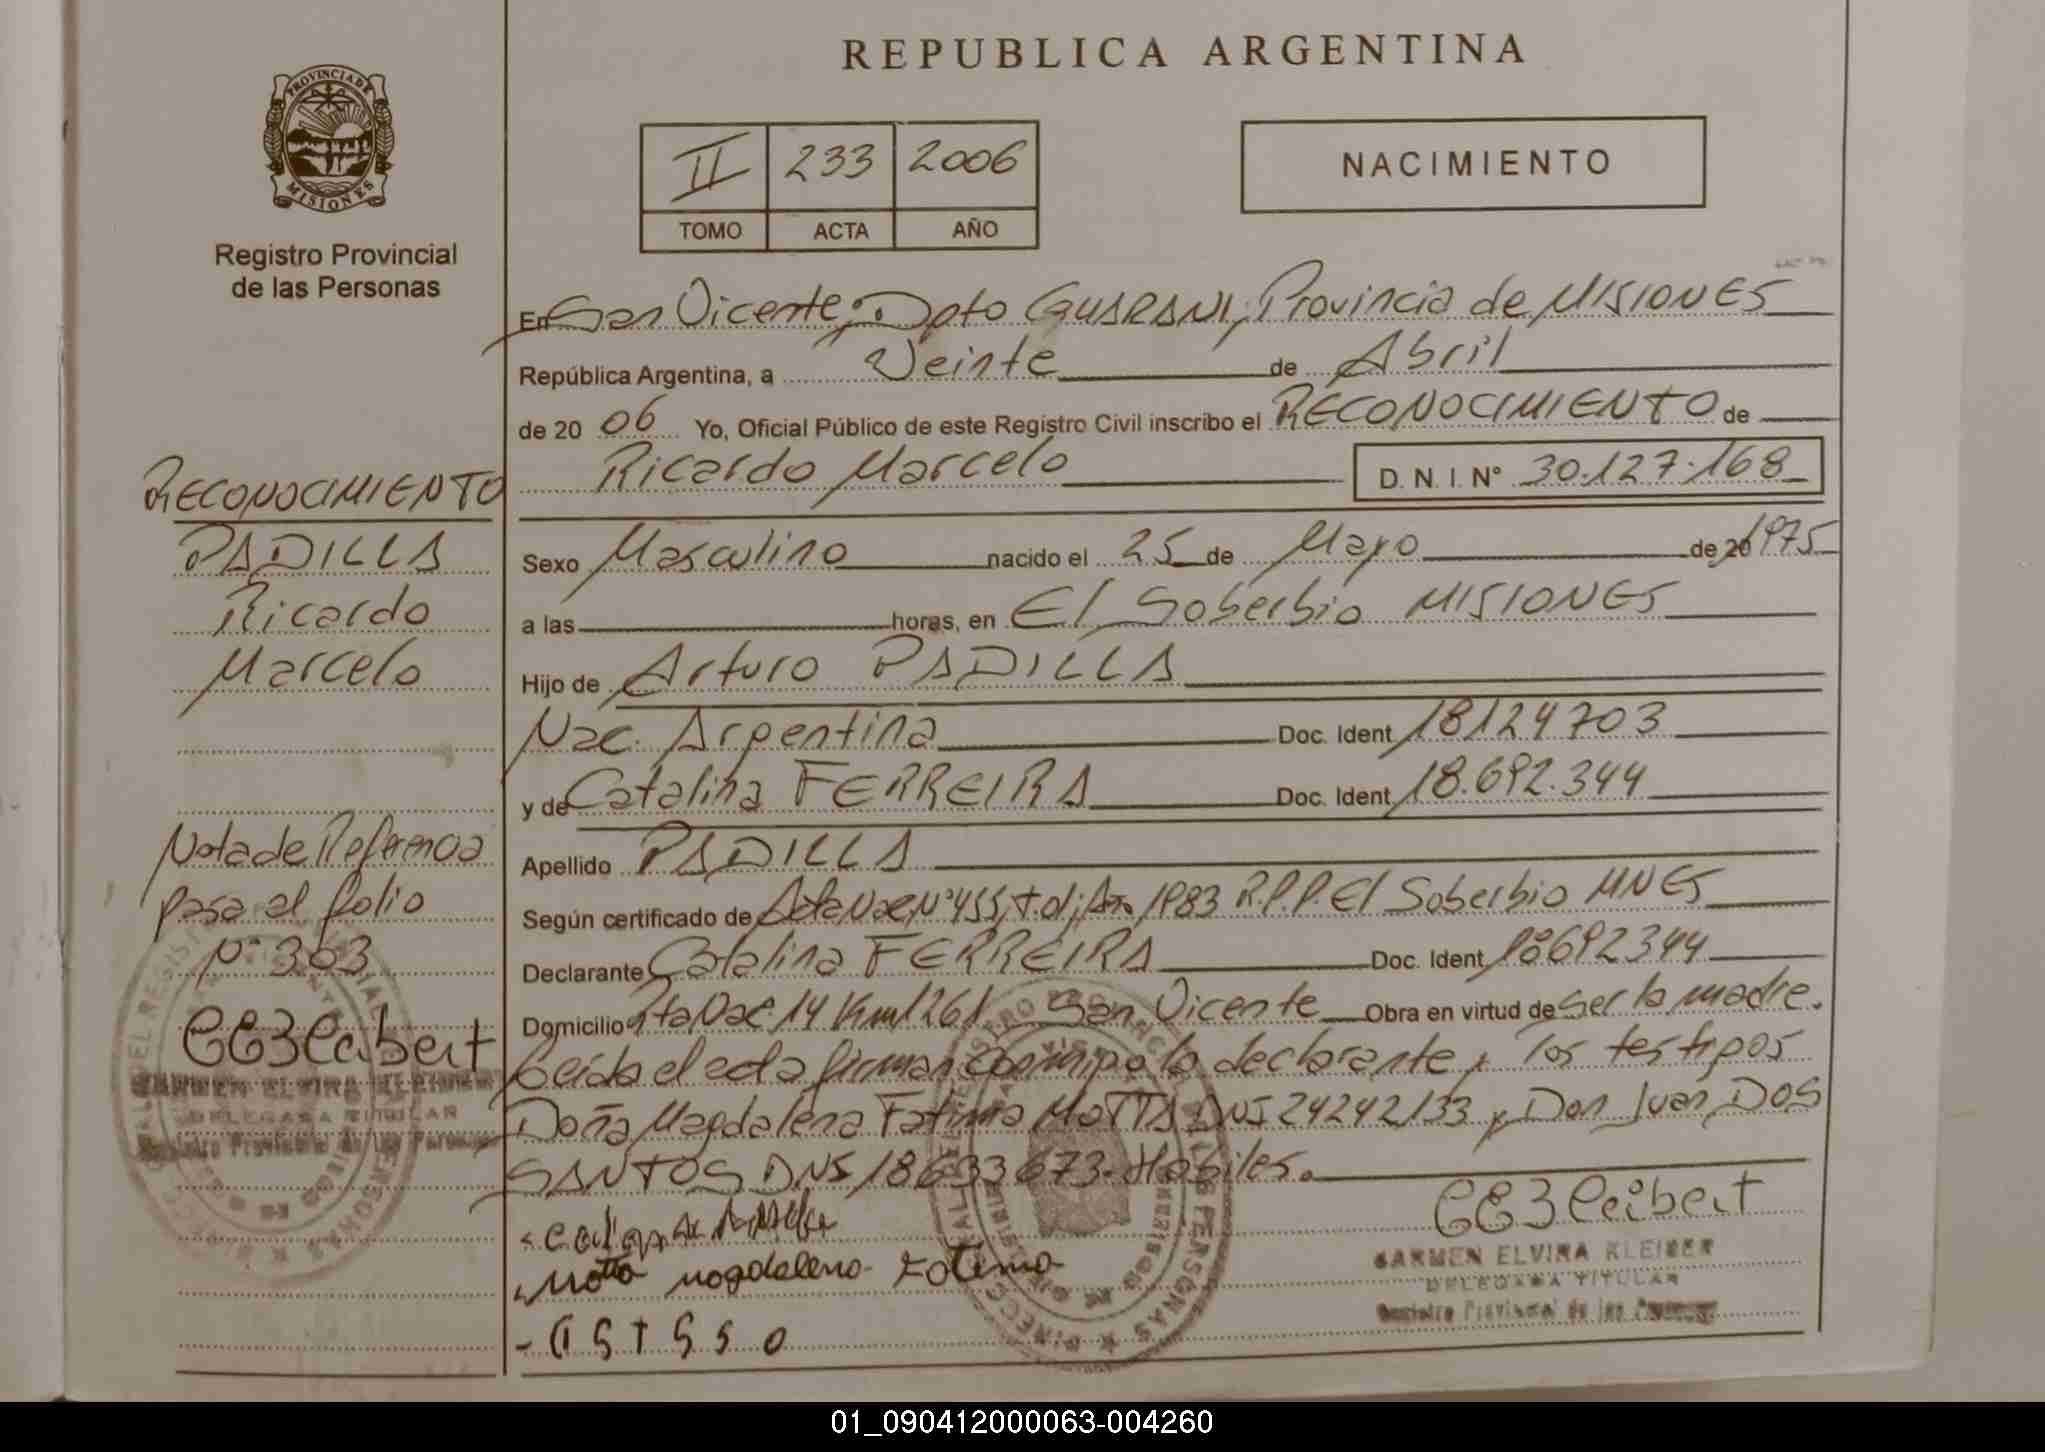 REPUBLICA ARGENTINA
PROVINCIA DE
MISIONES
Registro Provincial
de las Personas
II 233 2006
TOMO ACTA AÑO
NACIMIENTO
En San Vicente, Dpto GUARANI, Provincia de MISIONES
República Argentina, a Veinte de Abril
de 20 06 Yo, Oficial Público de este Registro Civil inscribo el RECONOCIMIENTO de
Ricardo Marcelo D. N. I. N° 30.127.168
RECONOCIMIENTO
PADILLA
Ricardo
Marcelo
Sexo Masculino nacido el 25 de Mayo de 20 1975
a las horas, en El Soberbio MISIONES
Hijo de Arturo PADILLA
Nac. Argentina Doc. Ident 18124703
y de Catalina FERREIRA Doc. Ident 18.692.344
Apellido PADILLA
Según certificado de Acta Nac N° 455, 1983 R.P.P. El Soberbio MNES
Declarante Catalina FERREIRA Doc. Ident 18692344
Domicilio Pta Dac 14 Km 1261 San Vicente Obra en virtud de ser la madre.
Leida el acta firman conmigo la declarante y los testigos
Doña Magdalena Fatima MOTTA DNI 24242133 y Don Juan DOS
SANTOS DNI 18633673. Habiles.
Nota de Referencia
pasa al folio
N° 303
CARMEN ELVIRA KLEIBER
DELEGADA TITULAR
Registro Provincial de las Personas
Motta magdalena Fatima
CARMEN ELVIRA KLEIBER
DELEGADA TITULAR
Registro Provincial de las Personas
01_090412000063-004260